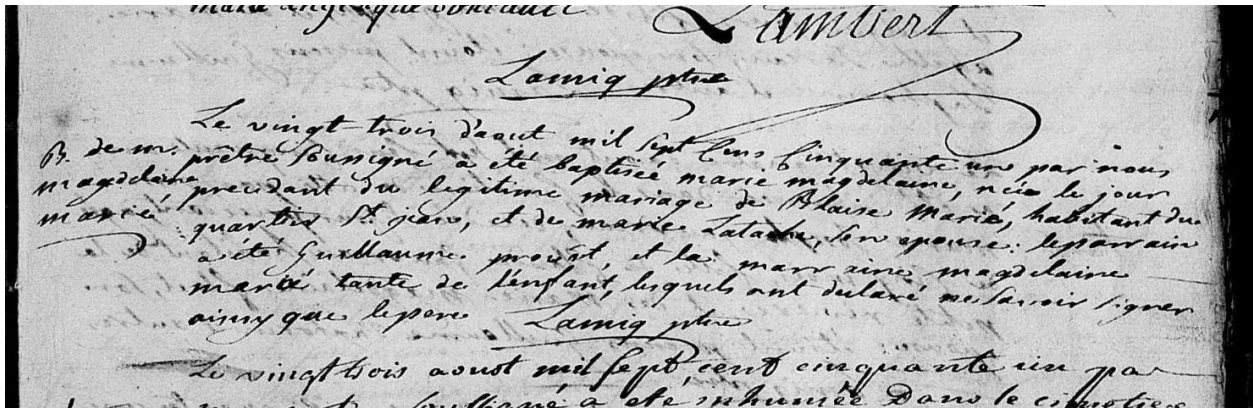 marie angelique
Lambert
Lamiq ptre
B. de m.
magdelaine
marié
Le vingt trois d'aout mil sept Cens Cinquante un par nous
prêtre soussigné a été baptisée marie magdelaine, née le jour
precedant du legitime mariage de Blaise Marié, habitant du
quartier St jean, et de marie Latache, son epouse: le parrain
a été Guillaume proust, et la marraine magdelaine
marié tante de l'enfant, lesquels ont declaré ne savoir signer
ainsy que le pere Lamiq ptre
Le vingt trois aoust mil sept cent cinquante un pa
soussigné a été inhumée Dans le cimetiere